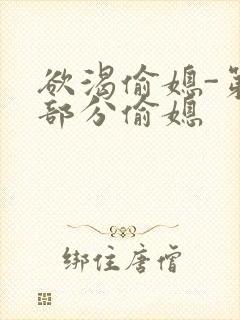 欲渴偷媳-第
部分偷媳
绑住唐僧